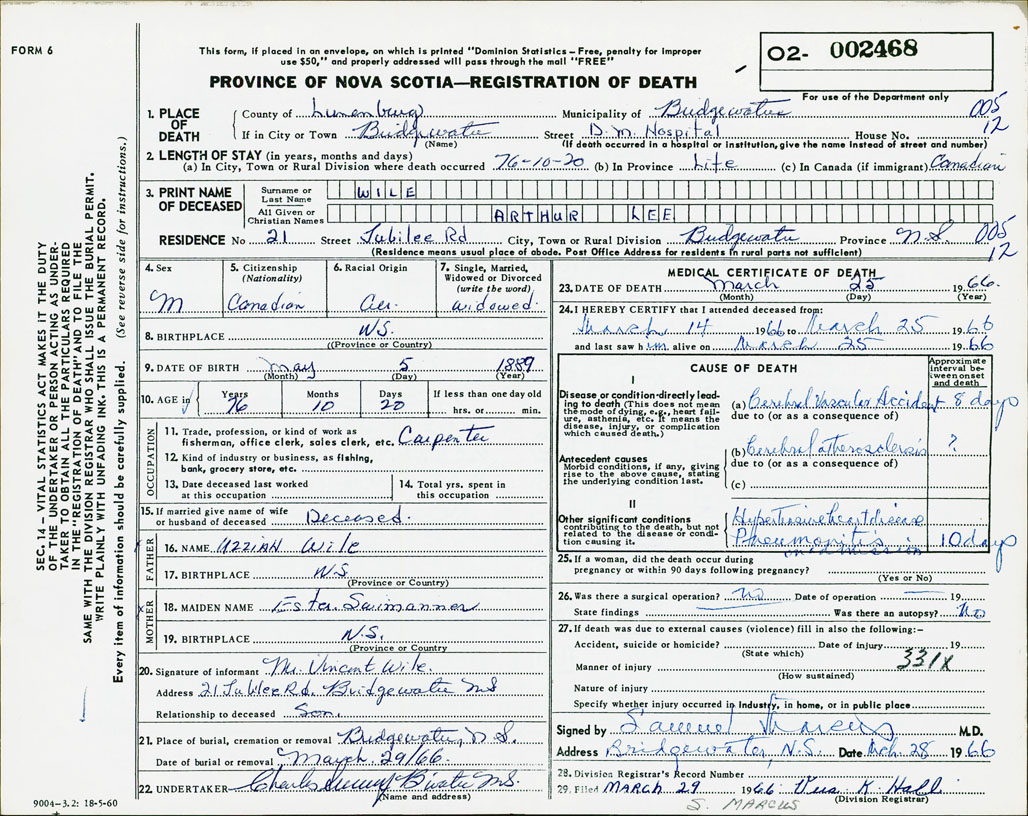 FORM 6
This form, if placed in an envelope, on which is printed "Dominion Statistics – Free, penalty for improper
use $50," and properly addressed will pass through the mail "FREE"
PROVINCE OF NOVA SCOTIA—REGISTRATION OF DEATH
O2- 002468
For use of the Department only
1. PLACE OF DEATH
County of Lunenburg Municipality of Bridgewater 005
If in City or Town Bridgewater Street D.M. Hospital House No. 12
(Name) (If death occurred in a hospital or institution, give the name instead of street and number)
2. LENGTH OF STAY (in years, months and days)
(a) In City, Town or Rural Division where death occurred 76-10-20 (b) In Province Life (c) In Canada (if immigrant) Canadian
3. PRINT NAME OF DECEASED
Surname or Last Name WILE
All Given or Christian Names ARTHUR LEE
RESIDENCE No 21 Street Jubilee Rd City, Town or Rural Division Bridgewater Province N.S. 005
(Residence means usual place of abode. Post Office Address for residents in rural parts not sufficient) 12
4. Sex M
5. Citizenship (Nationality) Canadian
6. Racial Origin
7. Single, Married, Widowed or Divorced (write the word) widowed
8. BIRTHPLACE N.S.
((Province or Country)
9. DATE OF BIRTH May 5 1889
(Month) (Day) (Year)
10. AGE in Years 76 Months 10 Days 20 If less than one day old hrs. or min.
OCCUPATION
11. Trade, profession, or kind of work as fisherman, office clerk, sales clerk, etc. Carpenter
12. Kind of industry or business, as fishing, bank, grocery store, etc.
13. Date deceased last worked at this occupation
14. Total yrs. spent in this occupation
15. If married give name of wife or husband of deceased Deceased.
FATHER
16. NAME Uzziah Wile
17. BIRTHPLACE N.S.
(Province or Country)
MOTHER
18. MAIDEN NAME Ester
19. BIRTHPLACE N.S.
(Province or Country)
20. Signature of informant Mr. Vincent Wile.
Address 21 Jubilee Rd. Bridgewater N.S
Relationship to deceased Son.
21. Place of burial, cremation or removal Bridgewater, N.S.
Date of burial or removal March 29/66.
22. UNDERTAKER Charles B'water N.S.
(Name and address)
9004-3.2: 18-5-60
MEDICAL CERTIFICATE OF DEATH
23. DATE OF DEATH March 25 1966.
(Month) (Day) (Year)
24. I HEREBY CERTIFY that I attended deceased from:
March 14 1966 to March 25 1966
and last saw him alive on March 25 1966
CAUSE OF DEATH
Approximate interval between onset and death
I
Disease or condition directly leading to death (This does not mean the mode of dying, e.g., heart failure, asthenia, etc. It means the disease, injury, or complication which caused death.)
(a) Cerebral Vascular Accident 8 days
due to (or as a consequence of)
Antecedent causes
Morbid conditions, if any, giving rise to the above cause, stating the underlying condition last.
(b) Cerebral atherosclerosis ?
due to (or as a consequence of)
(c)
II
Other significant conditions
contributing to the death, but not related to the disease or condition causing it.
Hypertensive heart disease
Pneumonitis 10 days
on admission
25. If a woman, did the death occur during pregnancy or within 90 days following pregnancy?
(Yes or No)
26. Was there a surgical operation? No Date of operation — 19
State findings Was there an autopsy? No
27. If death was due to external causes (violence) fill in also the following:–
Accident, suicide or homicide? Date of injury 19
(State which) 331X
Manner of injury
(How sustained)
Nature of injury
Specify whether injury occurred in Industry, in home, or in public place
Signed by Samuel Marcus M.D.
Address Bridgewater, N.S. Date Mch. 28 1966
28. Division Registrar's Record Number
29. Filed MARCH 29 1966 K. Hall
S. MARCUS (Division Registrar)
SEC. 14 – VITAL STATISTICS ACT MAKES IT THE DUTY
OF THE UNDERTAKER OR PERSON ACTING AS UNDER-
TAKER TO OBTAIN ALL THE PARTICULARS REQUIRED
IN THE "REGISTRATION OF DEATH" AND TO FILE THE
SAME WITH THE DIVISION REGISTRAR WHO SHALL ISSUE THE BURIAL PERMIT.
WRITE PLAINLY WITH UNFADING INK. THIS IS A PERMANENT RECORD.
Every item of information should be carefully supplied. (See reverse side for instructions.)